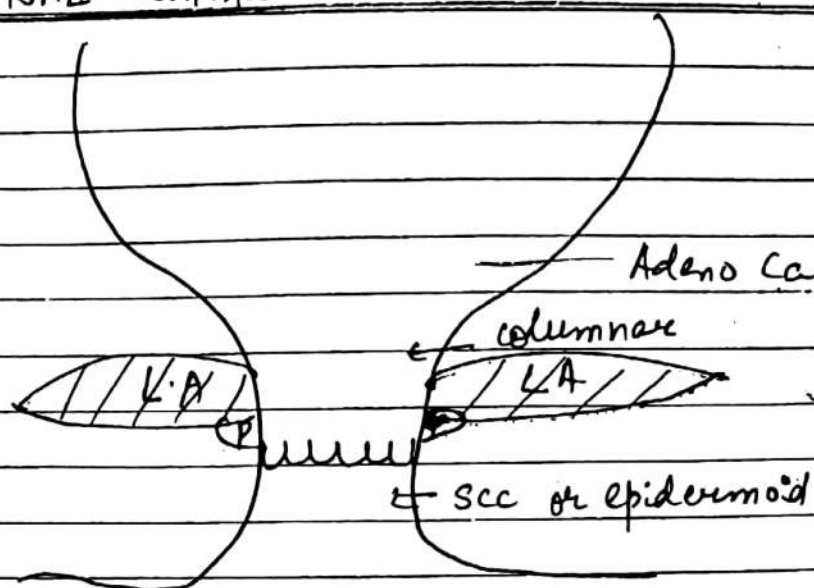 Adeno Ca
columnar
L.A
LA
P
P
← scc or epidermoid